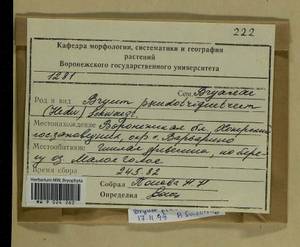 222
Кафедра морфологии, систематики и географии
растений
Воронежского государственного университета
1281
Сем. Bryaceae
Род и вид Bryum pseudotriquetrum
(Hedw.) Schwaegr.
Местонахождение Воронежская обл.
госзаповедник, окр. с. Варварино
Местообитание гнилая древесина, на берегу
оз. Малое голое
Время сбора 24.5.82
Собрал Попова Н Н
Определил
Herbarium MW, Bryophyta
Bryum
17.11.99